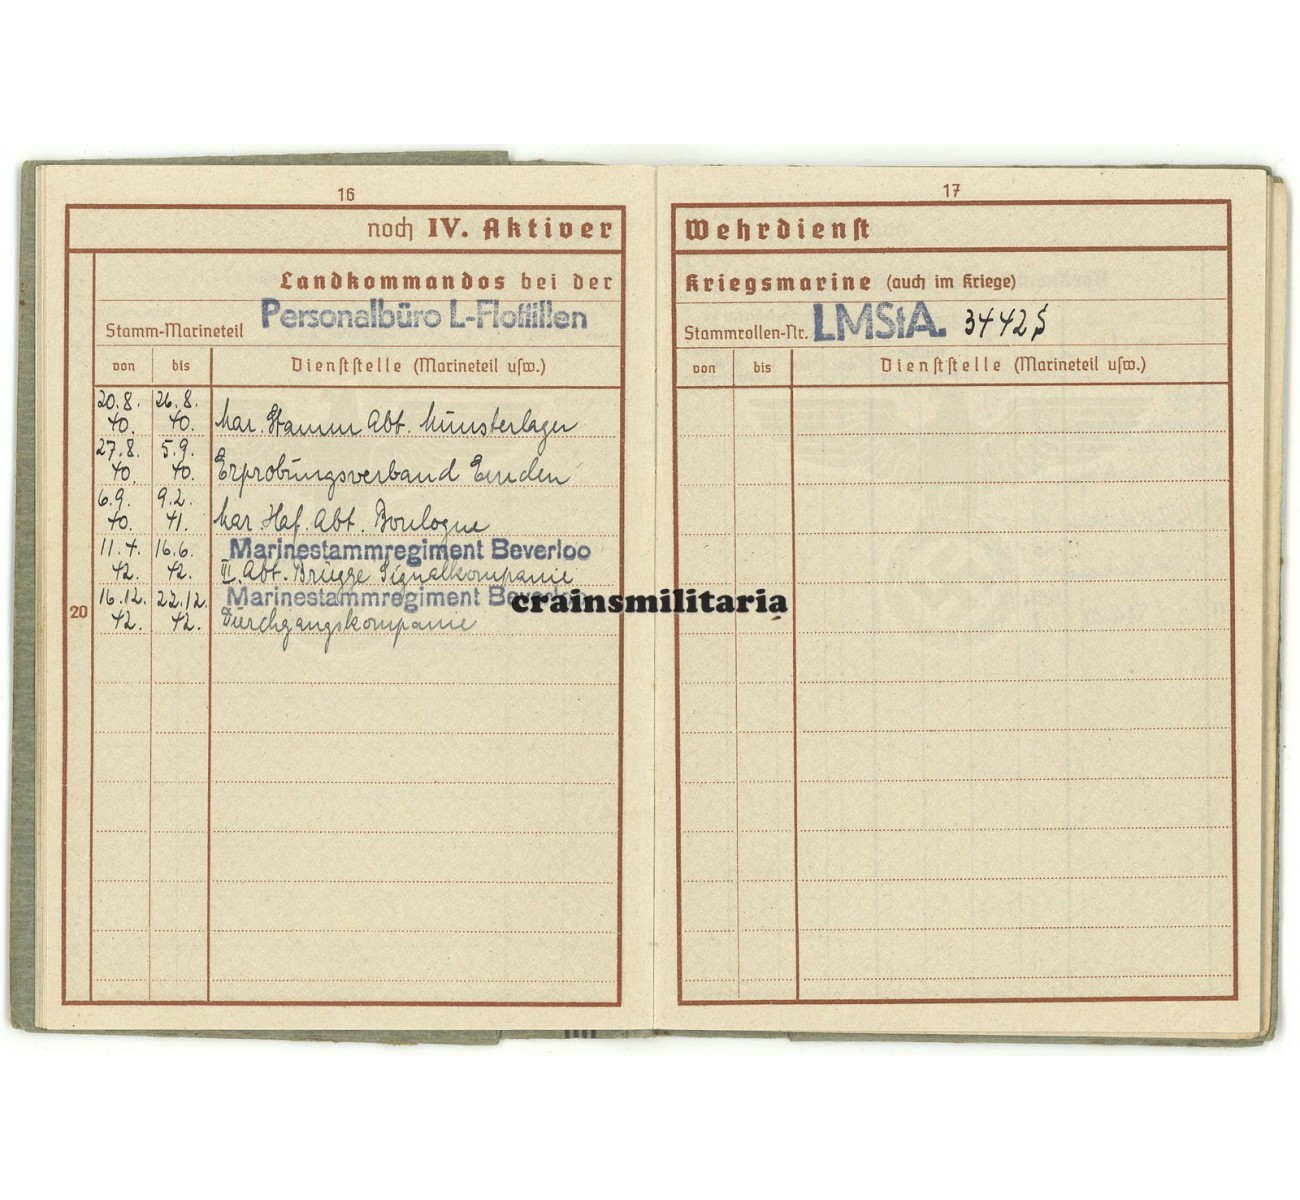 16
noch IV. Aktiver
Landkommandos bei der
Stamm-Marineteil Personalbüro L-Flotillen
von bis Dienststelle (Marineteil usw.)
20.8. 26.8.
40. 40. Mar. Stamm Abt. Münsterlager
27.8. 5.9.
40. 40. Erprobungsverband Emden
6.9. 9.2.
40. 41. Mar. Haf. Abt. Boulogne
11.4. 16.6. Marinestammregiment Beverloo
42. 42. II. Abt. Brügge Signalkompanie
16.12. 22.12. Marinestammregiment Beverloo
42. 42. Durchgangskompanie
20
17
Wehrdienst
Kriegsmarine (auch im Kriege)
Stammrollen-Nr. LMStA. 34425
von bis Dienststelle (Marineteil usw.)
crainsmilitaria